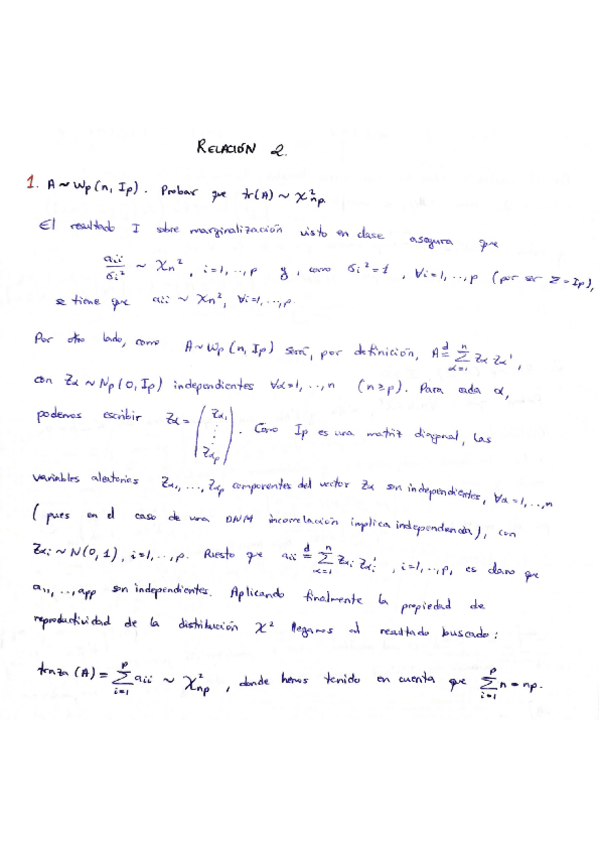 RELACIÓN 2.
1. A ~ Wp (n, Ip). Probar que tr(A) ~ χ²np
El resultado I sobre marginalización visto en clase asegura que
aii/σi² ~ χn², i=1,..,p y, como σi²=1, ∀i=1,...,p (por ser Σ=Ip),
se tiene que aii ~ χn², ∀i=1,..,p.
Por otro lado, como A~Wp (n, Ip) será, por definición, A =ᵈ Σ_{α=1}^{n} Zα Zα',
con Zα ~ Np (0, Ip) independientes ∀α=1,..,n (n≥p). Para cada α,
podemos escribir Zα = (Zα1 ⋮ Zαp). Como Ip es una matriz diagonal, las
variables aleatorias Zα1, ..., Zαp componentes del vector Zα son independientes, ∀α=1,..,n
(pues en el caso de una DNM incorrelación implica independencia), con
Zαi ~ N(0,1), i=1,..,p. Puesto que aii =ᵈ Σ_{α=1}^{n} Zαi Zαi', i=1,..,p, es claro que
a11, ..., app son independientes. Aplicando finalmente la propiedad de
reproductividad de la distribución χ² llegamos al resultado buscado:
traza (A) = Σ_{i=1}^{p} aii ~ χ²np, donde hemos tenido en cuenta que Σ_{i=1}^{p} n = np.